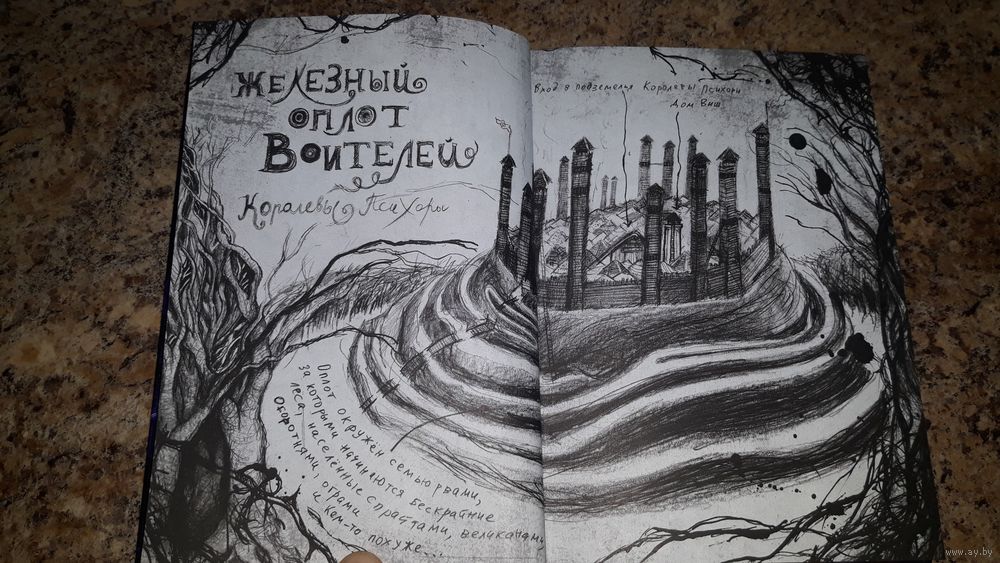 ЖЕЛЕЗНЫЙ
ОПЛОТ
ВОИТЕЛЕЙ
Королевы Психоры
Вход в подземелья Королевы Психоры
Дом Виш
Оплот окружен семью рвами,
за которыми начинаются бескрайние
леса, населённые спрайтами, великанами,
оборотнями, ограми
и кем-то похуже...
www.ay.by